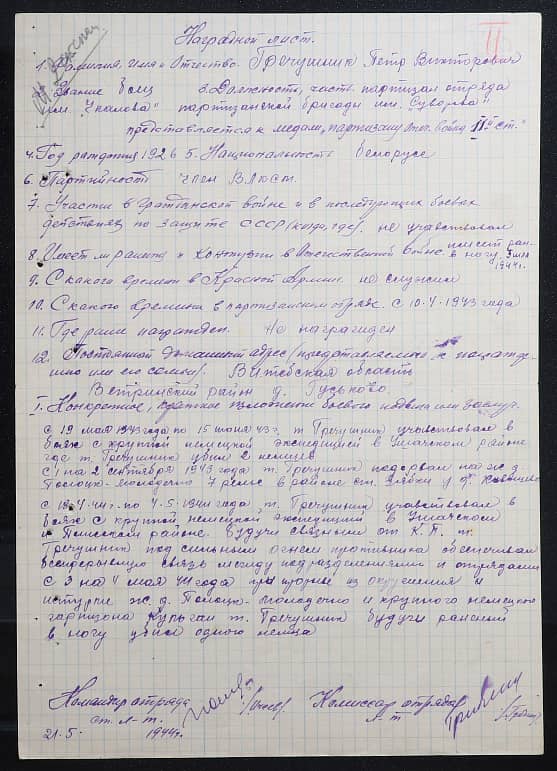 Наградной лист.
II
1. Фамилия, Имя и Отчество. Гречушник Петр Викторович
2. Звание боец 3. Должность, часть партизан отряда
им. "Чкалова" партизанской бригады им. "Суворова"
представляется к медали, партизану Отеч. войны IIой ст."
4. Год рождения 1926 5. Национальность белорус
6. Партийность член ВЛКСМ.
7. Участие в гражданской войне и в последующих боевых
действиях по защите СССР (когда, где). не учавствовал
8. Имеет ли ранения и контузии в Отечественной войне. имеет ран.
в ногу 3 мая
1944г.
9. С какого времени в Красной Армии. не служил
10. С какого времени в партизанском отряде. с 10.1.1943 года
11. Где ранее награжден. Не награжден
12. Постоянный домашний адрес (представляемого к награжде-
нию или его семьи). Витебская область
Ветринский район д. Гуньково
I. Конкретное, краткое изложение боевого подвига или заслуг.
с 19 мая 1943 года по 15 июня 43 г. т. Гречушник учавствовал в
боях с крупной немецкой экспедицией в Ушачском районе
где т. Гречушник убил 2 немцев
С 1 на 2 сентября 1943 года т. Гречушник подорвал на ж.д.
Полоцк-Молодечно 7 рельс в районе ст. Зябки у д.
по 4.5.1944 года, т. Гречушник учавствовал в
боях с крупной немецкой экспедицией в Ушачском
и Полотском районе. Будучи связным от К.П. т.
Гречушник под сильным огнем противника обеспечивал
бесперерывную связь между подразделениями и отрядами
с 3 на 4 мая 44 года при прорыве из окружения и
штурме ж.д. Полоцк-Молодечно и крупного немецкого
гарнизона т. Гречушник будучи раненый
в ногу убил одного немца
Командир отряда Комиссар отряда
ст. л-т. л-т
21.5. 1944г.